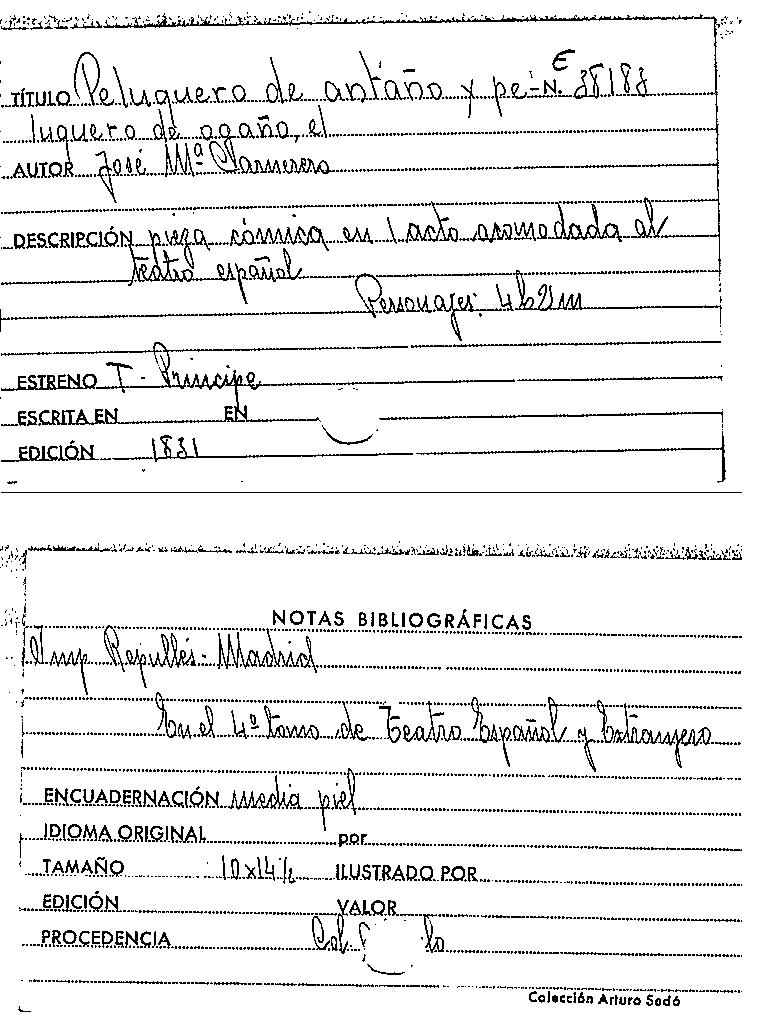 TÍTULO Peluquero de antaño y pe- N. E 38183
luquero de ogaño, el
AUTOR José Mª Carnerero
DESCRIPCIÓN pieza cómica en 1 acto acomodada al
teatro español
Personajes: 4h 2m
ESTRENO T - Principe
ESCRITA EN EN
EDICIÓN 1831
NOTAS BIBLIOGRÁFICAS
Imp Repullés - Madrid
En el 4º tomo de Teatro Español y Extranjero
ENCUADERNACIÓN media piel
IDIOMA ORIGINAL por
TAMAÑO 10x14½ ILUSTRADO POR
EDICIÓN VALOR
PROCEDENCIA Col.
Colección Arturo Sedó